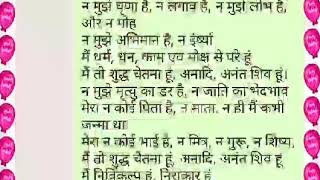 न मुझे घृणा है, न लगाव है, न मुझे लोभ है,
और न मोह
न मुझे अभिमान है, न ईर्ष्या
मैं धर्म, धन, काम एवं मोक्ष से परे हूं
मैं तो शुद्ध चेतना हूं, अनादि, अनंत शिव हूं।
न मुझे मृत्यु का डर है, न जाति का भेदभाव
मेरा न कोई पिता है, न माता, न ही मैं कभी
जन्मा था
मेरा न कोई भाई है, न मित्र, न गुरू, न शिष्य,
मैं तो शुद्ध चेतना हूं, अनादि, अनंत शिव हूं
मैं निर्विकल्प हूं, निराकार हूं